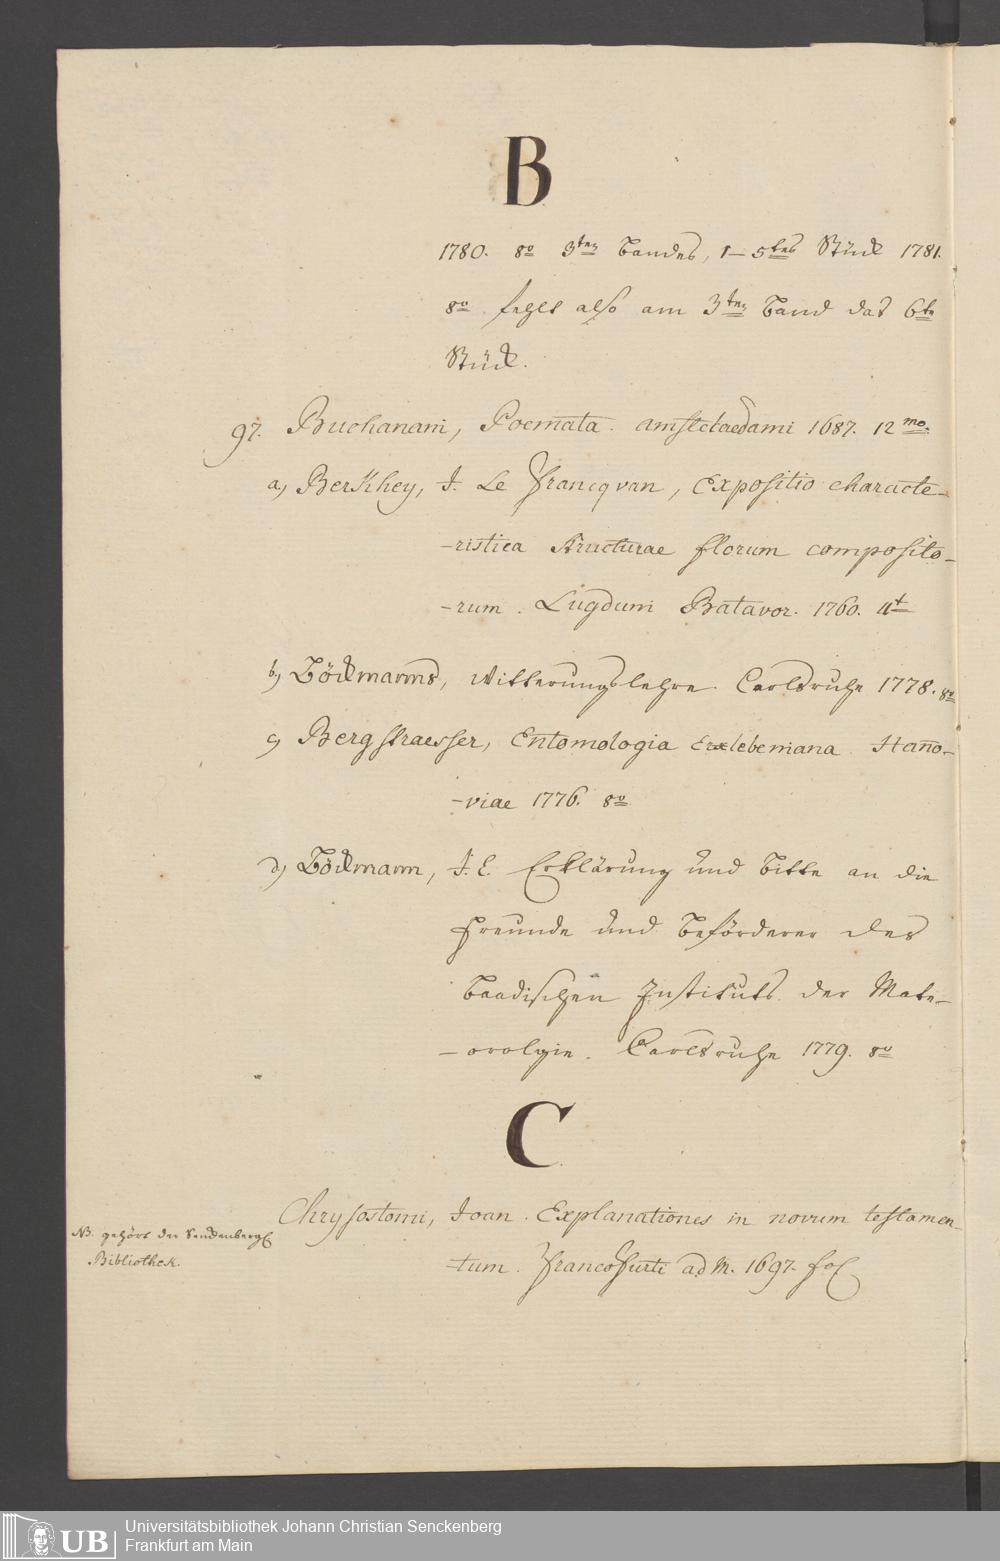 B
1780. 8º 3ten Bandes, 1–5tes Stück 1781.
8º. fehlt also am 3ten Band das 6te
Stück.
97. Buchanani, Poemata. Amstelaedami 1687. 12mo.
a) Berkhey, J. Le Francq van, Expositio characte-
-ristica structurae florum composito-
-rum. Lugduni Batavor. 1760. 4t
b) Böckmanns, Witterungslehre. Carlsruhe 1778. 8º
c) Bergstraesser, Entomologia Erxlebeniana. Hano-
-viae 1776. 8º
d) Böckmann, J. L. Erklärung und Bitte an die
Freunde und Beförderer des
Baadischen Instituts der Mete-
-orolgie. Carlsruhe 1779. 8º
C
Chrysostomi, Joan. Explanationes in novum testamen-
-tum. Francofurti ad M. 1697. fol
NB. gehört der Senckenberg
Bibliothek.
UB Universitätsbibliothek Johann Christian Senckenberg
Frankfurt am Main